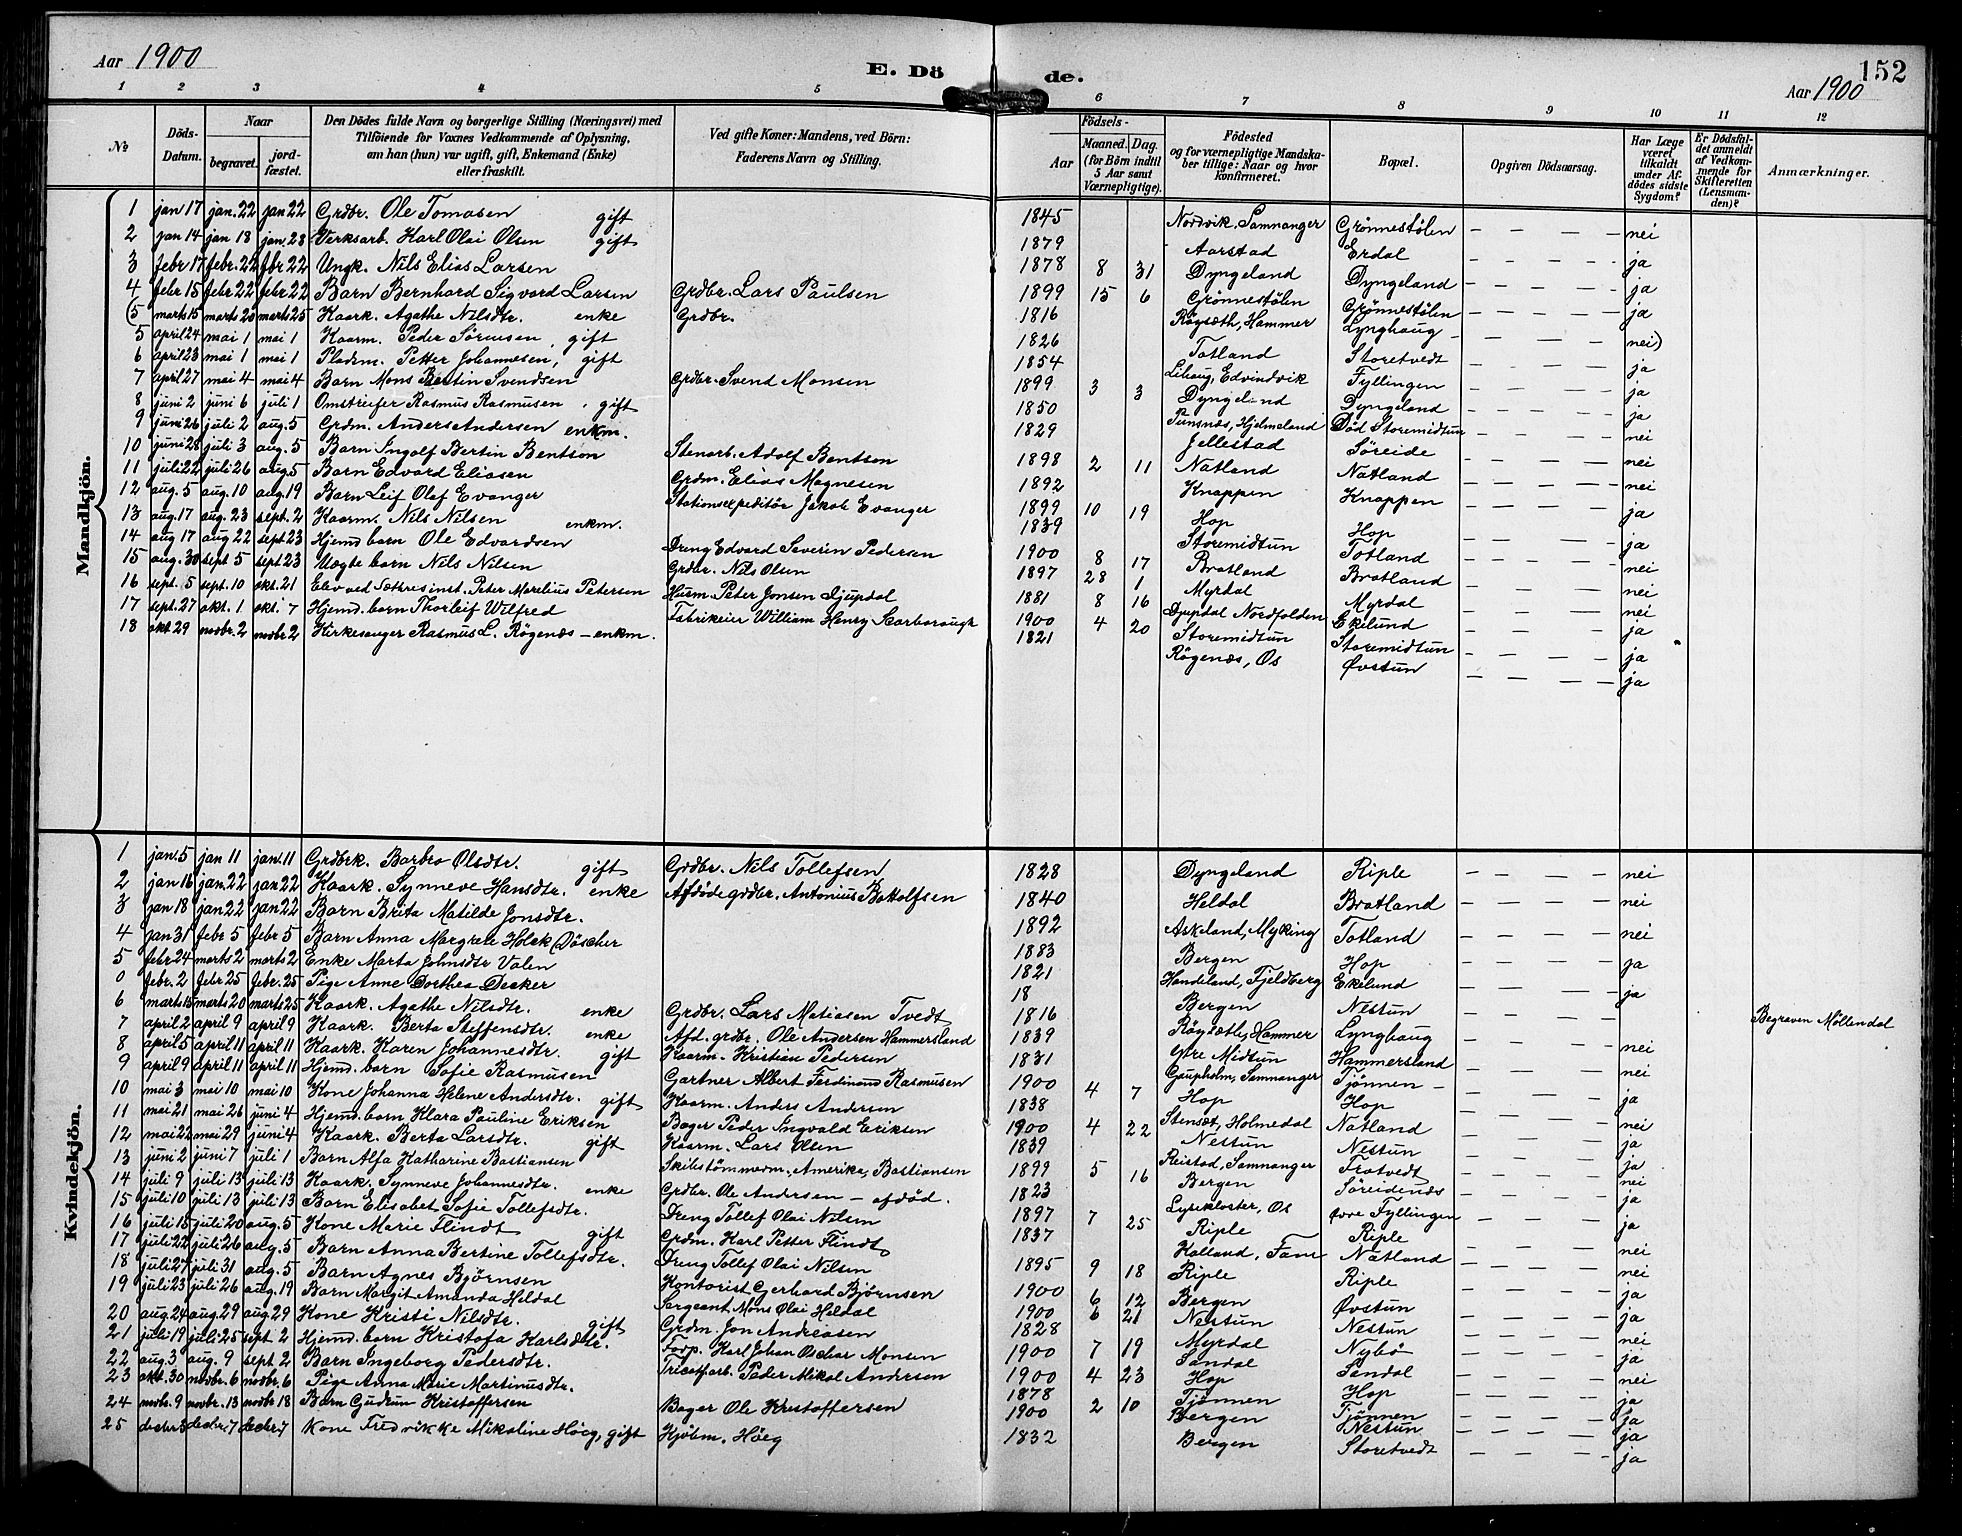 Aar 1900
E. Dö de.
152
Aar 1900
1 2 3 4 5 6 7 8 9 10 11 12
№
Döds-Datum.
Naar
begravet.
jordfæstet.
Den Dödes fulde Navn og borgerlige Stilling (Næringsvei) med Tilföiende for Voxnes Vedkommende af Oplysning, om han (hun) var ugift, gift, Enkemand (Enke) eller fraskilt.
Ved gifte Koner: Mandens, ved Börn: Faderens Navn og Stilling.
Födsels-
Aar
Maaned. Dag.
(for Börn indtil 5 Aar samt Værnepligtige).
Födested og for værnepligtige Mandskaber tillige: Naar og hvor konfirmeret.
Bopæl.
Opgiven Dödsaarsag.
Har Læge været tilkaldt under Afdödes sidste Sygdom?
Er Dödsfaldet anmeldt af Vedkommende for Skifteretten (Lensmanden)?
Anmærkninger.
Mandkjön.
1 jan 17 jan. 22 jan 22 Grdbr. Ole Tomasen gift 1845 Nordvik, Samnanger Grönnestölen — — — — nei
2 jan 14 jan 18 jan. 28 Verksarb. Karl Olai Olsen gift 1879 Aarstad Erdal — — — - ja
3 febr 17 febr. 22 fbr 22 Ungk. Nils Elias Larsen 1878 8 31 Dyngeland Dyngeland — — — — ja
4 febr 15 febr 22 febr 22 Barn Bernhard Sigvard Larsen Grdbr. Lars Paulsen 1899 15 6 Grönnestölen Grönnestölen — — — — ja
(5 marts 15 marts 20 marts 25 Kaark. Agathe Nilsdtr. enke Grdbr. 1816 Röysæth, Hammer Lynghaug — — — — nei)
5 april 24 mai 1 mai 1 Kaarm. Peder Sörensen, gift 1826 Totland Storetvedt — — — — ja
6 april 23 mai 1 mai 1 Pladsm. Petter Johannesen, gift 1854 Lihaug, Edvindvik Fyllingen — — — — ja
7 april 27 mai 4 mai 4 Barn Mons Bertin Svendsen Grdbr. Svend Monsen 1899 3 3 Dyngeland Dyngeland — — — — ja
8 juni 2 juni 6 juli 1 Omstreifer Rasmus Rasmusen gift 1850 Hjelmeland Död Storemidtun — — — — nei
9 juni 26 juli 2 aug. 5 Grdm. Anders Andersen enkm. 1829 Jellestad Söreide — — — — nei
10 juni 28 juli 3 aug. 5 Barn Ingolf Bertin Bentson Stenarb. Adolf Bentsen 1898 2 11 Natland Natland — — — — nei
11 juli 22 juli 26 aug 5 Barn Edvard Eliasen Grdm. Elias Magnesen 1892 Knappen Knappen — — — — ja
12 aug. 5 aug. 10 aug. 19 Barn Leif Olaf Evanger Stationsexpeditör Jakob Evanger 1899 10 19 Hop Hop — — — — ja
13 aug. 17 aug. 23 sept. 2 Kaarm. Nils Nilsen enkm. 1839 Storemidtun Totland — — — — nei
14 aug 17 aug 22 sept 23 Hjemd. barn Ole Edvardsen Dreng Edvard Severin Pedersen 1900 8 17 Bratland Bratland — — — — nei
15 aug. 30 sept 5 sept 23 Uægte barn Nils Nilsen Grdbr. Nils Olsen 1897 28 1 Myrdal Myrdal — — — — nei
16 sept. 5 sept. 10 okt. 21 Elev ved Sætres inst. Peter Marelius Petersen Husm. Peter Jonsen Djupdal 1881 8 16 Djupdal Nordfolden Ekelund — — — — ja
17 sept. 27 okt. 1 okt. 7 Hjemd. barn Thorleif Wilfred Fabrikeier William Henry Scarborough 1900 4 20 Storemidtun Storemidtun — — — — ja
18 okt 29 novbr. 2 novbr 2 Kirkesanger Rasmus L. Rögenæs — enkm. 1821 Rögenæs, Os Övstun — — — — ja
Kvindekjön.
1 jan. 5 jan 11 jan. 11 Grdbrk. Barbro Olsdtr. gift Grdbr. Nils Tollefsen 1828 Dyngeland Riple — — — — nei
2 jan 16 jan. 22 jan 22 Kaark. Synneve Hansdtr. enke Afdöde grdbr. Antonius Bottolfsen 1840 Heldal Bratland — — — — nei
3 jan 18 jan 22 jan 22 Barn Brita Matilde Jonsdtr. 1892 Askeland, Myking Totland — — — — nei
4 jan 31 febr 5 febr 5 Barn Anna Margrete Holck Döscher 1883 Bergen Hop — — — — ja
5 febr 24 marts 2 marts 2 Enke Marta Johnsdtr Valen 1821 Handeland, Fjeldberg Ekelund — — — — ja
0 febr. 2 febr 25 febr. 25 Pige Anne Dorthea Decker 18 Bergen Nestun Begraven Möllendal
6 marts 15 marts 20 marts 25 Kaark. Agathe Nilsdtr. enke Grdbr. Lars Matiasen Tvedt 1816 Röysætle, Hammer Lynghaug — — — — nei
7 april 2 april 9 april 9 Kaark. Berta Steffensdtr. enke Afd. grdbr. Ole Andersen Hammersland 1839 Ytre Midtun Hammersland — — — — nei
8 april 5 april 11 april 11 Kaark. Karen Johannesdtr. gift Kaarm. Kristian Pedersen 1831 Gaupholm, Samnanger Tjönnen — — — — ja
9 april 9 april 11 april 11 Hjemd. barn Sofie Rasmusen Gartner Albert Ferdinand Rasmusen 1900 4 7 Hop Hop — — — — nei
10 mai 3 mai 10 mai 10 Kone Johanna Helene Andersdtr. gift Kaarm. Anders Andersen 1838 Stensæt, Holmedal Natland — — — — ja
11 mai 21 mai 26 juni 4 Hjemd. born Klara Pauline Eriksen Bager Peder Ingvald Eriksen 1900 4 22 Nestun Nestun — — — — ja
12 mai 22 mai 29 juni 4 Kaark. Berta Larsdtr. gift Kaarm. Lars Olsen 1839 Reistad, Samnanger Tratvedt — — — — nei
13 juni 2 juni 7 juli 1 Barn Alfa Katharine Bastiansen Skibstömmerm., Amerika, Bastiansen 1899 5 16 Bergen Söreidenæs — — — — ja
14 juli 9 juli 13 juli 13 Kaark. Synneve Johannesdtr. enke Grdbr. Ole Andersen — afdöd. 1823 Lysekloster, Os Övre Fyllingen — — — — ja
15 juli 10 juli 13 juli 13 Barn Elisabet Sofie Tollefsdtr. Dreng Tollef Olai Nilsen 1897 7 25 Riple Riple — — — — nei
16 juli 15 juli 20 aug. 5 Kone Marie Flindt gift Grdm. Karl Petter Flindt 1837 Kalland, Fane Natland — — — — nei
17 juli 22 juli 26 aug. 5 Barn Anna Bertine Tollefsdtr. Dreng Tollef Olai Nilsen 1895 9 18 Riple Riple — — — — ja
18 juli 27 juli 31 aug. 5 Barn Agnes Björnsen Kontorist Gerhard Björnsen 1900 6 12 Bergen Övstun — — — — ja
19 juli 23 juli 26 aug. 19 Barn Margit Amanda Heldal Sergeant Mons Olai Heldal 1900 6 21 Nestun Nestun — — — — nei
20 aug. 24 aug. 29 aug 29 Kone Kristi Nilsdtr. gift Grdm. Jon Andreasen 1828 Myrdal Nybö — — — — ja
21 juli 19 juli 25 sept. 2 Hjemd. born Kristofa Karlsdtr. Forp. Karl Johan Oschar Monsen 1900 7 19 Sandal Sandal — — — — nei
22 aug. 3 aug. 9 sept 2 Barn Ingeborg Pedersdtr. Tricotfarb. Peder Mikal Andersen 1900 4 23 Hop Hop — — — — ja
23 okt. 30 novbr. 6 novbr. 6 Pige Anna Marie Martinusdtr. 1878 Tjönnen Tjönnen — — — — ja
24 novbr. 9 novbr. 13 novbr 18 Barn Gudrun Kristoffersen Bager Ole Kristoffersen 1900 2 10 Bergen Nestun — — — — ja
25 decbr 3 decbr. 7 decbr. 7 Kone Fredrikke Mikoline Höeg, gift Kjöbm. Höeg 1832 Bergen Storetvedt — — — — ja